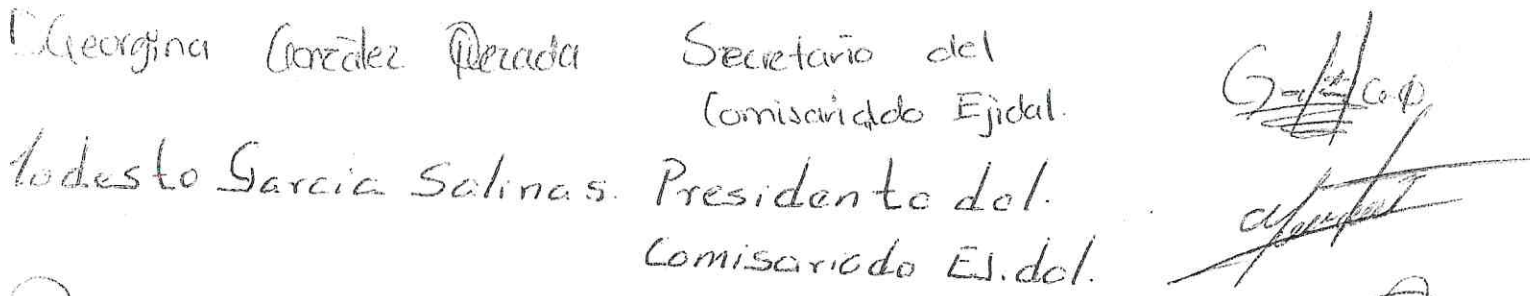 Georgina González Quezada Secretario del
Comisariado Ejidal.
Modesto Garcia Salinas. Presidente del.
Comisariado Ejidal.